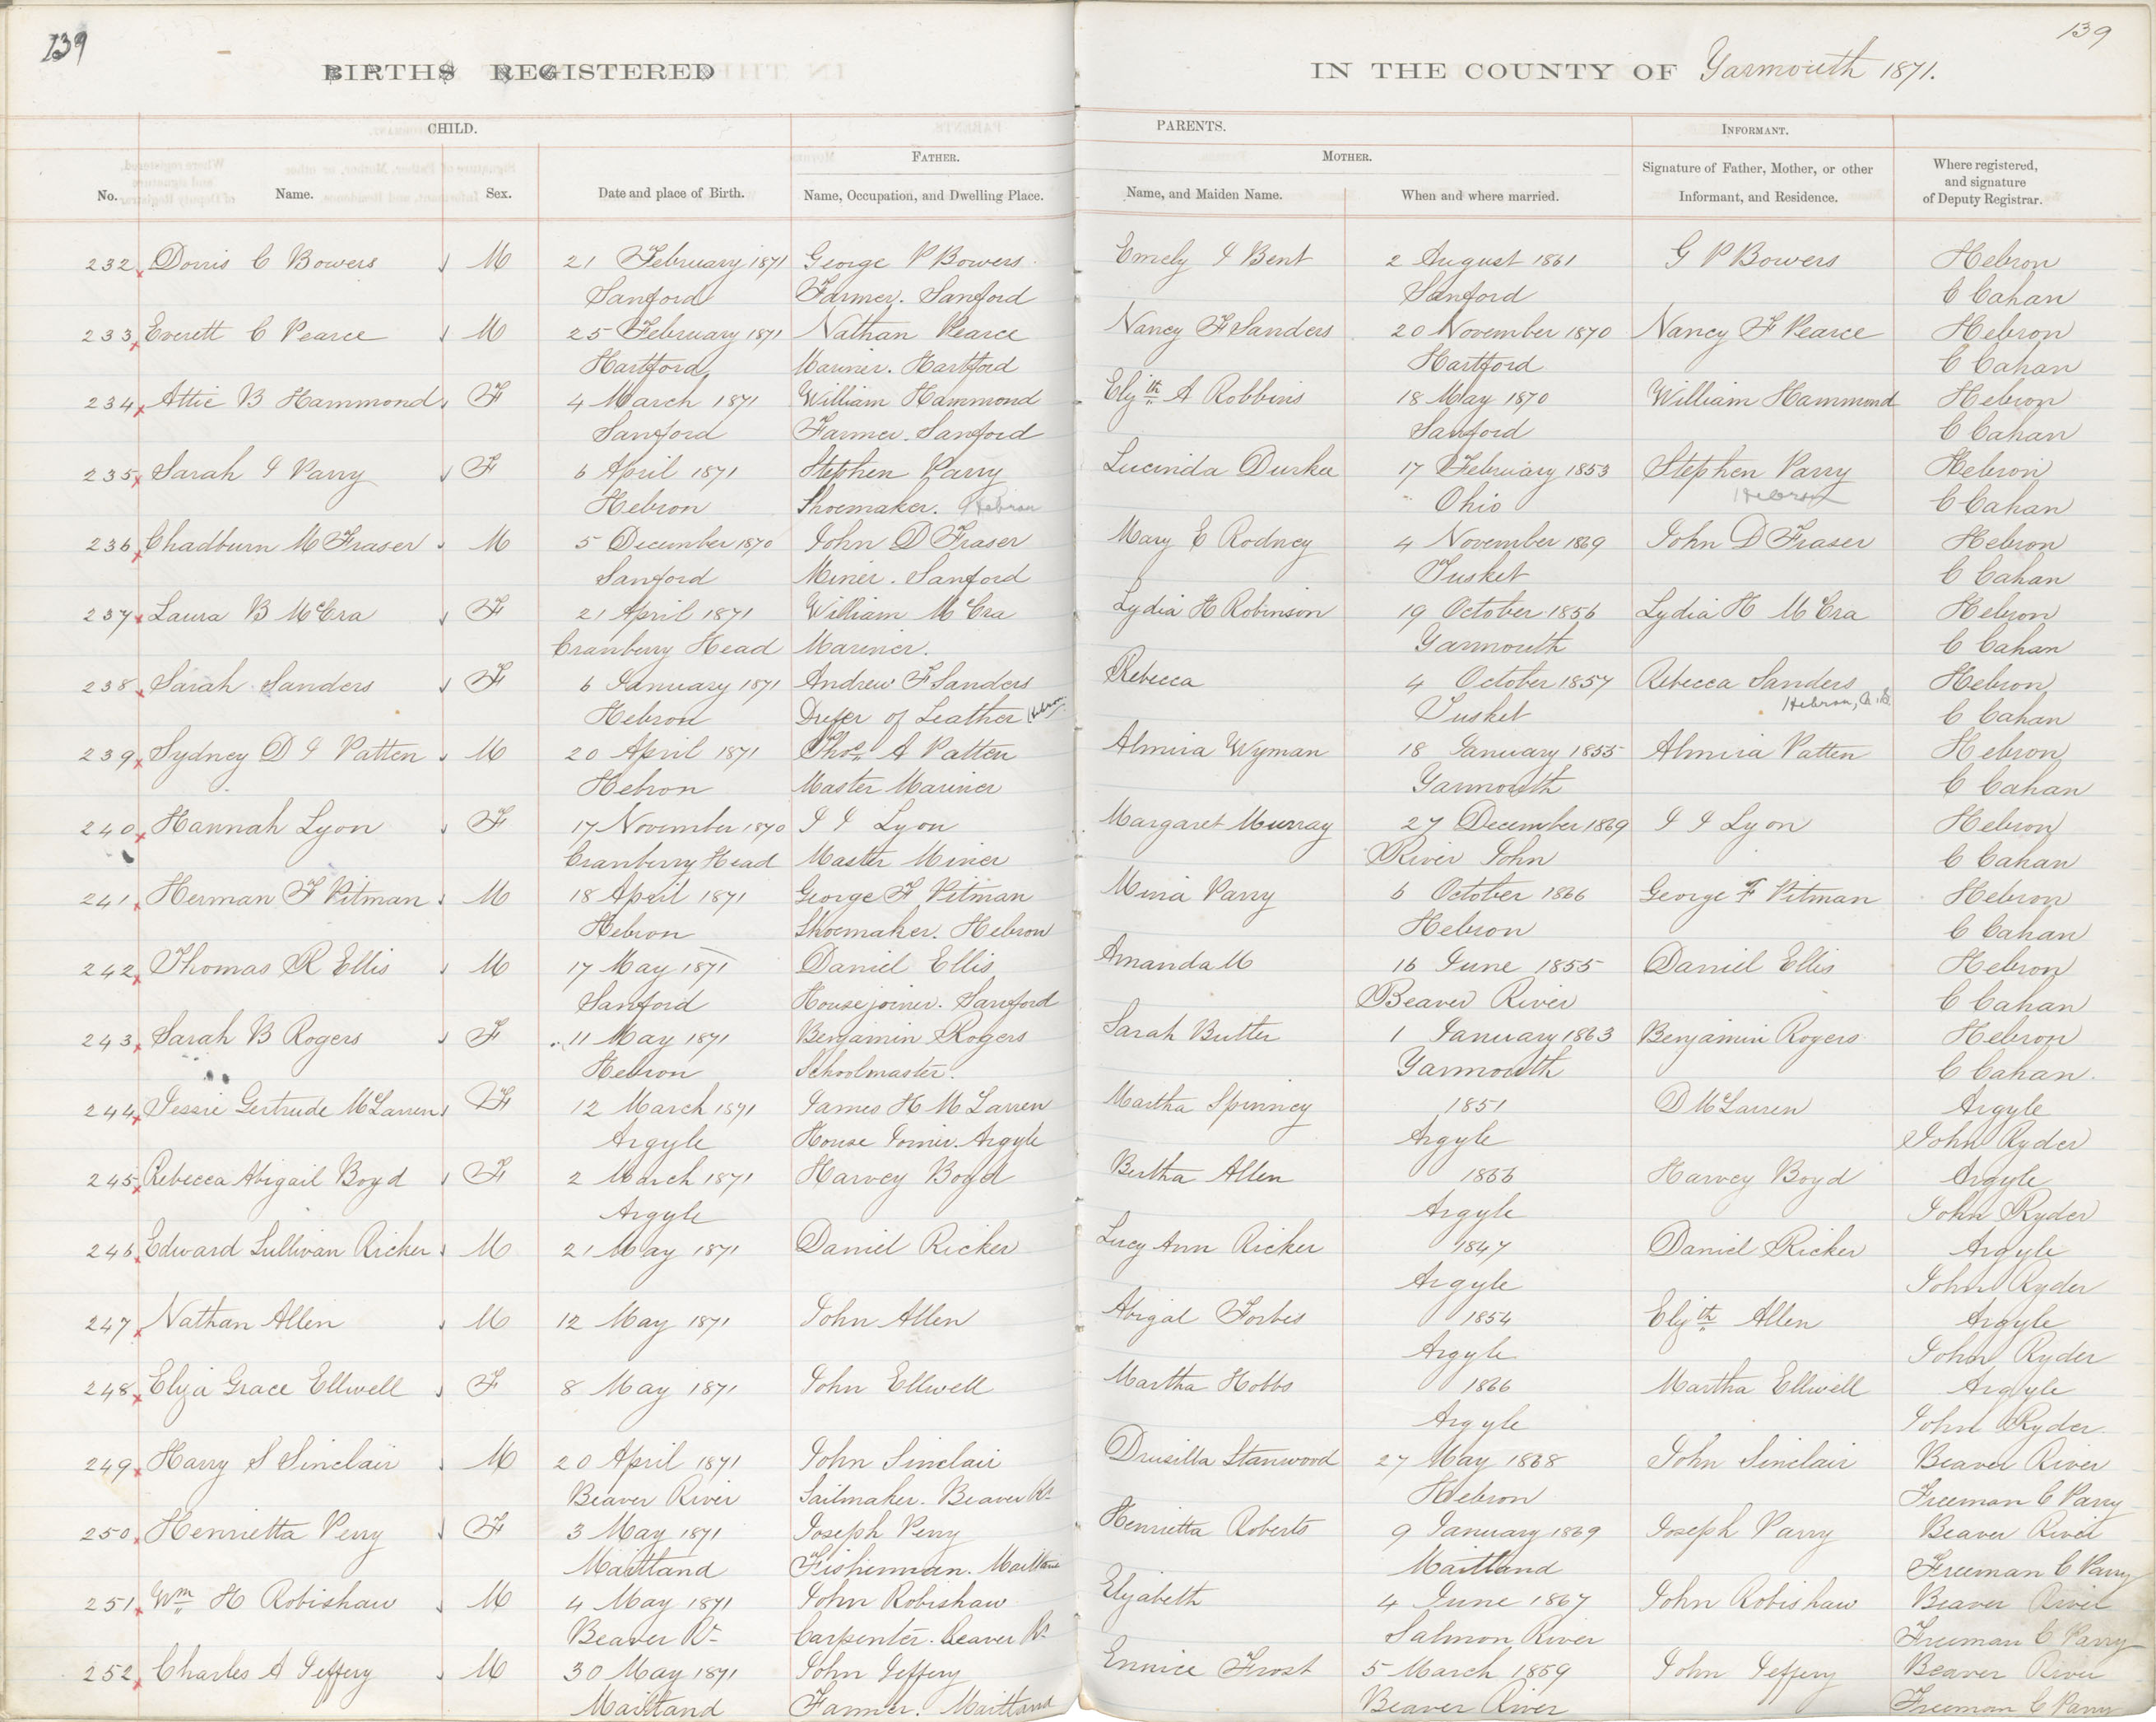 139
139
BIRTHS REGISTERED
IN THE COUNTY OF Yarmouth 1871.
CHILD.
PARENTS.
INFORMANT.
FATHER.
MOTHER.
Signature of Father, Mother, or other
Informant, and Residence.
Where registered,
and signature
of Deputy Registrar.
No. Name. Sex. Date and place of Birth. Name, Occupation, and Dwelling Place. Name, and Maiden Name. When and where married.
232 Dorris C Bowers M 21 February 1871 George P Bowers Emely J Bent 2 August 1861 G P Bowers Hebron
Sanford Farmer. Sanford Sanford C Cahan
233 Everett C Pearce M 25 February 1871 Nathan Pearce Nancy F Sanders 20 November 1870 Nancy F Pearce Hebron
Hartford Mariner. Hartford Hartford C Cahan
234 Attie B Hammond F 4 March 1871 William Hammond Elizth A Robbins 18 May 1870 William Hammond Hebron
Sanford Farmer. Sanford Sanford C Cahan
235 Sarah J Parry F 6 April 1871 Stephen Parry Lucinda Durkee 17 February 1853 Stephen Parry Hebron
Hebron Shoemaker. Hebron Ohio Hebron C Cahan
236 Chadburn M Fraser M 5 December 1870 John D Fraser Mary E Rodney 4 November 1869 John D Fraser Hebron
Sanford Miner. Sanford Tusket C Cahan
237 Laura B McCra F 21 April 1871 William McCra Lydia H Robinson 19 October 1856 Lydia H McCra Hebron
Cranberry Head Mariner. Yarmouth C Cahan
238 Sarah Sanders F 6 January 1871 Andrew F Sanders Rebecca 4 October 1857 Rebecca Sanders Hebron
Hebron of Leather Hebron Tusket Hebron, C Cahan
239 Sydney D J Patten M 20 April 1871 Thos A Patten Almira Wyman 18 January 1855 Almira Patten Hebron
Hebron Master Mariner Yarmouth C Cahan
240 Hannah Lyon F 17 November 1870 J J Lyon Margaret Murray 27 December 1869 J J Lyon Hebron
Cranberry Head Master Miner River John C Cahan
241 Herman F Pitman M 18 April 1871 George F Pitman Miria Parry 6 October 1866 George F Pitman Hebron
Hebron Shoemaker. Hebron Hebron C Cahan
242 Thomas R Ellis M 17 May 1871 Daniel Ellis Amanda M 16 June 1855 Daniel Ellis Hebron
Sanford Housejoiner. Sanford Beaver River C Cahan
243 Sarah B Rogers F 11 May 1871 Benjamin Rogers Sarah Butler 1 January 1863 Benjamin Rogers Hebron
Hebron Schoolmaster. Yarmouth C Cahan.
244 Jessie Gertrude McLarren F 12 March 1871 James H McLarren Martha Spinney 1851 D McLarren Argyle
Argyle House Joiner. Argyle Argyle John Ryder
245 Rebecca Abigail Boyd F 2 March 1871 Harvey Boyd Bertha Allen 1866 Harvey Boyd Argyle
Argyle Argyle John Ryder
246 Edward Sullivan Ricker M 21 May 1871 Daniel Ricker Lucy Ann Ricker 1847 Daniel Ricker Argyle
Argyle John Ryder
247 Nathan Allen M 12 May 1871 John Allen Abigal Forbes 1854 Elizth Allen Argyle
Argyle John Ryder
248 Eliza Grace Ellwell F 8 May 1871 John Ellwell Martha Hobbs 1866 Martha Ellwell Argyle
Argyle John Ryder
249 Harry S Sinclair M 20 April 1871 John Sinclair Drusilla Stanwood 27 May 1868 John Sinclair Beaver River
Beaver River Sailmaker. Beaver Rr Hebron Freeman C Parry
250 Henrietta Perry F 3 May 1871 Joseph Perry Henrietta Roberts 9 January 1869 Joseph Parry Beaver River
Maitland Fisherman. Maitland Maitland Freeman C Parry
251 Wm H Robishaw M 4 May 1871 John Robishaw Elizabeth 4 June 1867 John Robishaw Beaver River
Beaver Rr Carpenter. Beaver Rr Salmon River Freeman C Parry
252 Charles A Jeffery M 30 May 1871 John Jeffery Eunice Frost 5 March 1859 John Jeffery Beaver River
Maitland Farmer. Maitland Beaver River Freeman C Parry